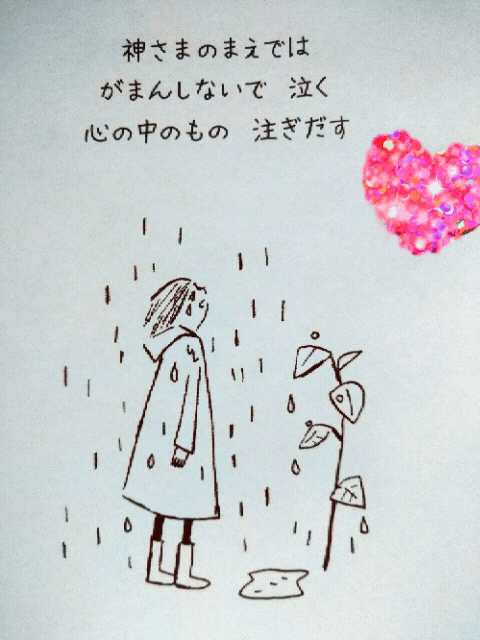 神さまのまえでは
がまんしないで 泣く
心の中のもの 注ぎだす